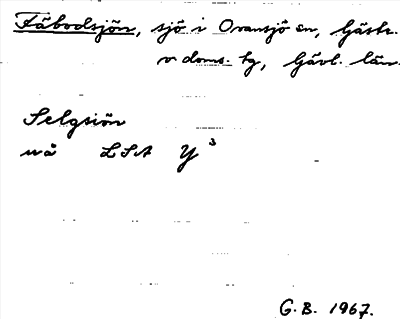 Fäbodsjön, sjö i Ovansjö sn, Gästr.
v doms. hg, Gävl. län.
Selgsiön
nå LSA Y³
G.B. 1967.